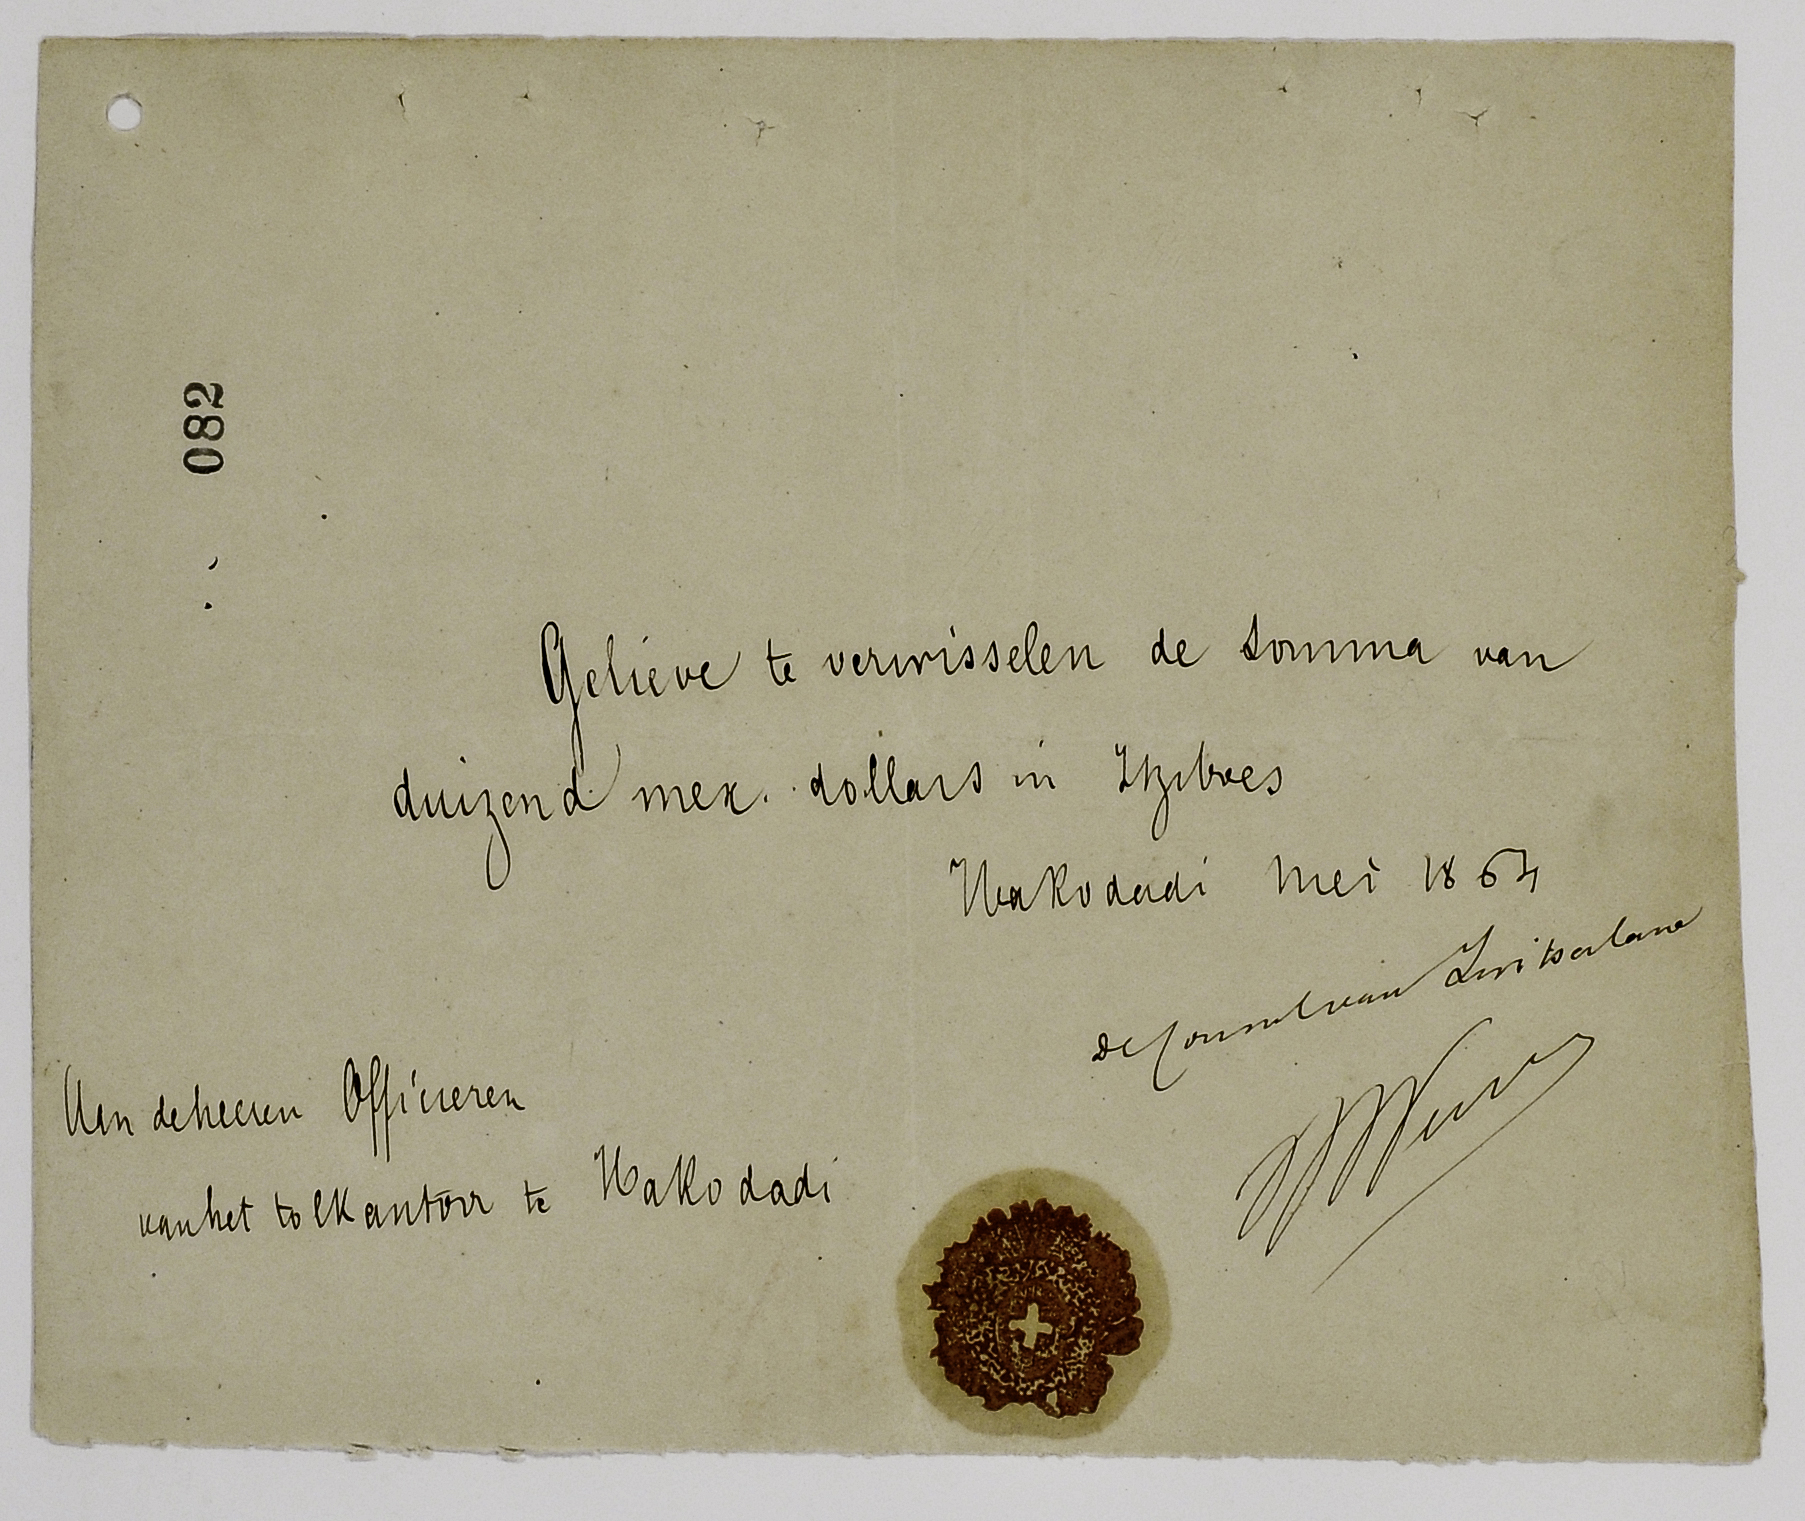 082
Gelieve te verwisselen de somma van
duizend mex. dollars in Itzeboes
Hakodadi Mei 1864
De Consul van Zwitserland
Aan de heeren Officieren
van het tolkantoor te Hakodadi